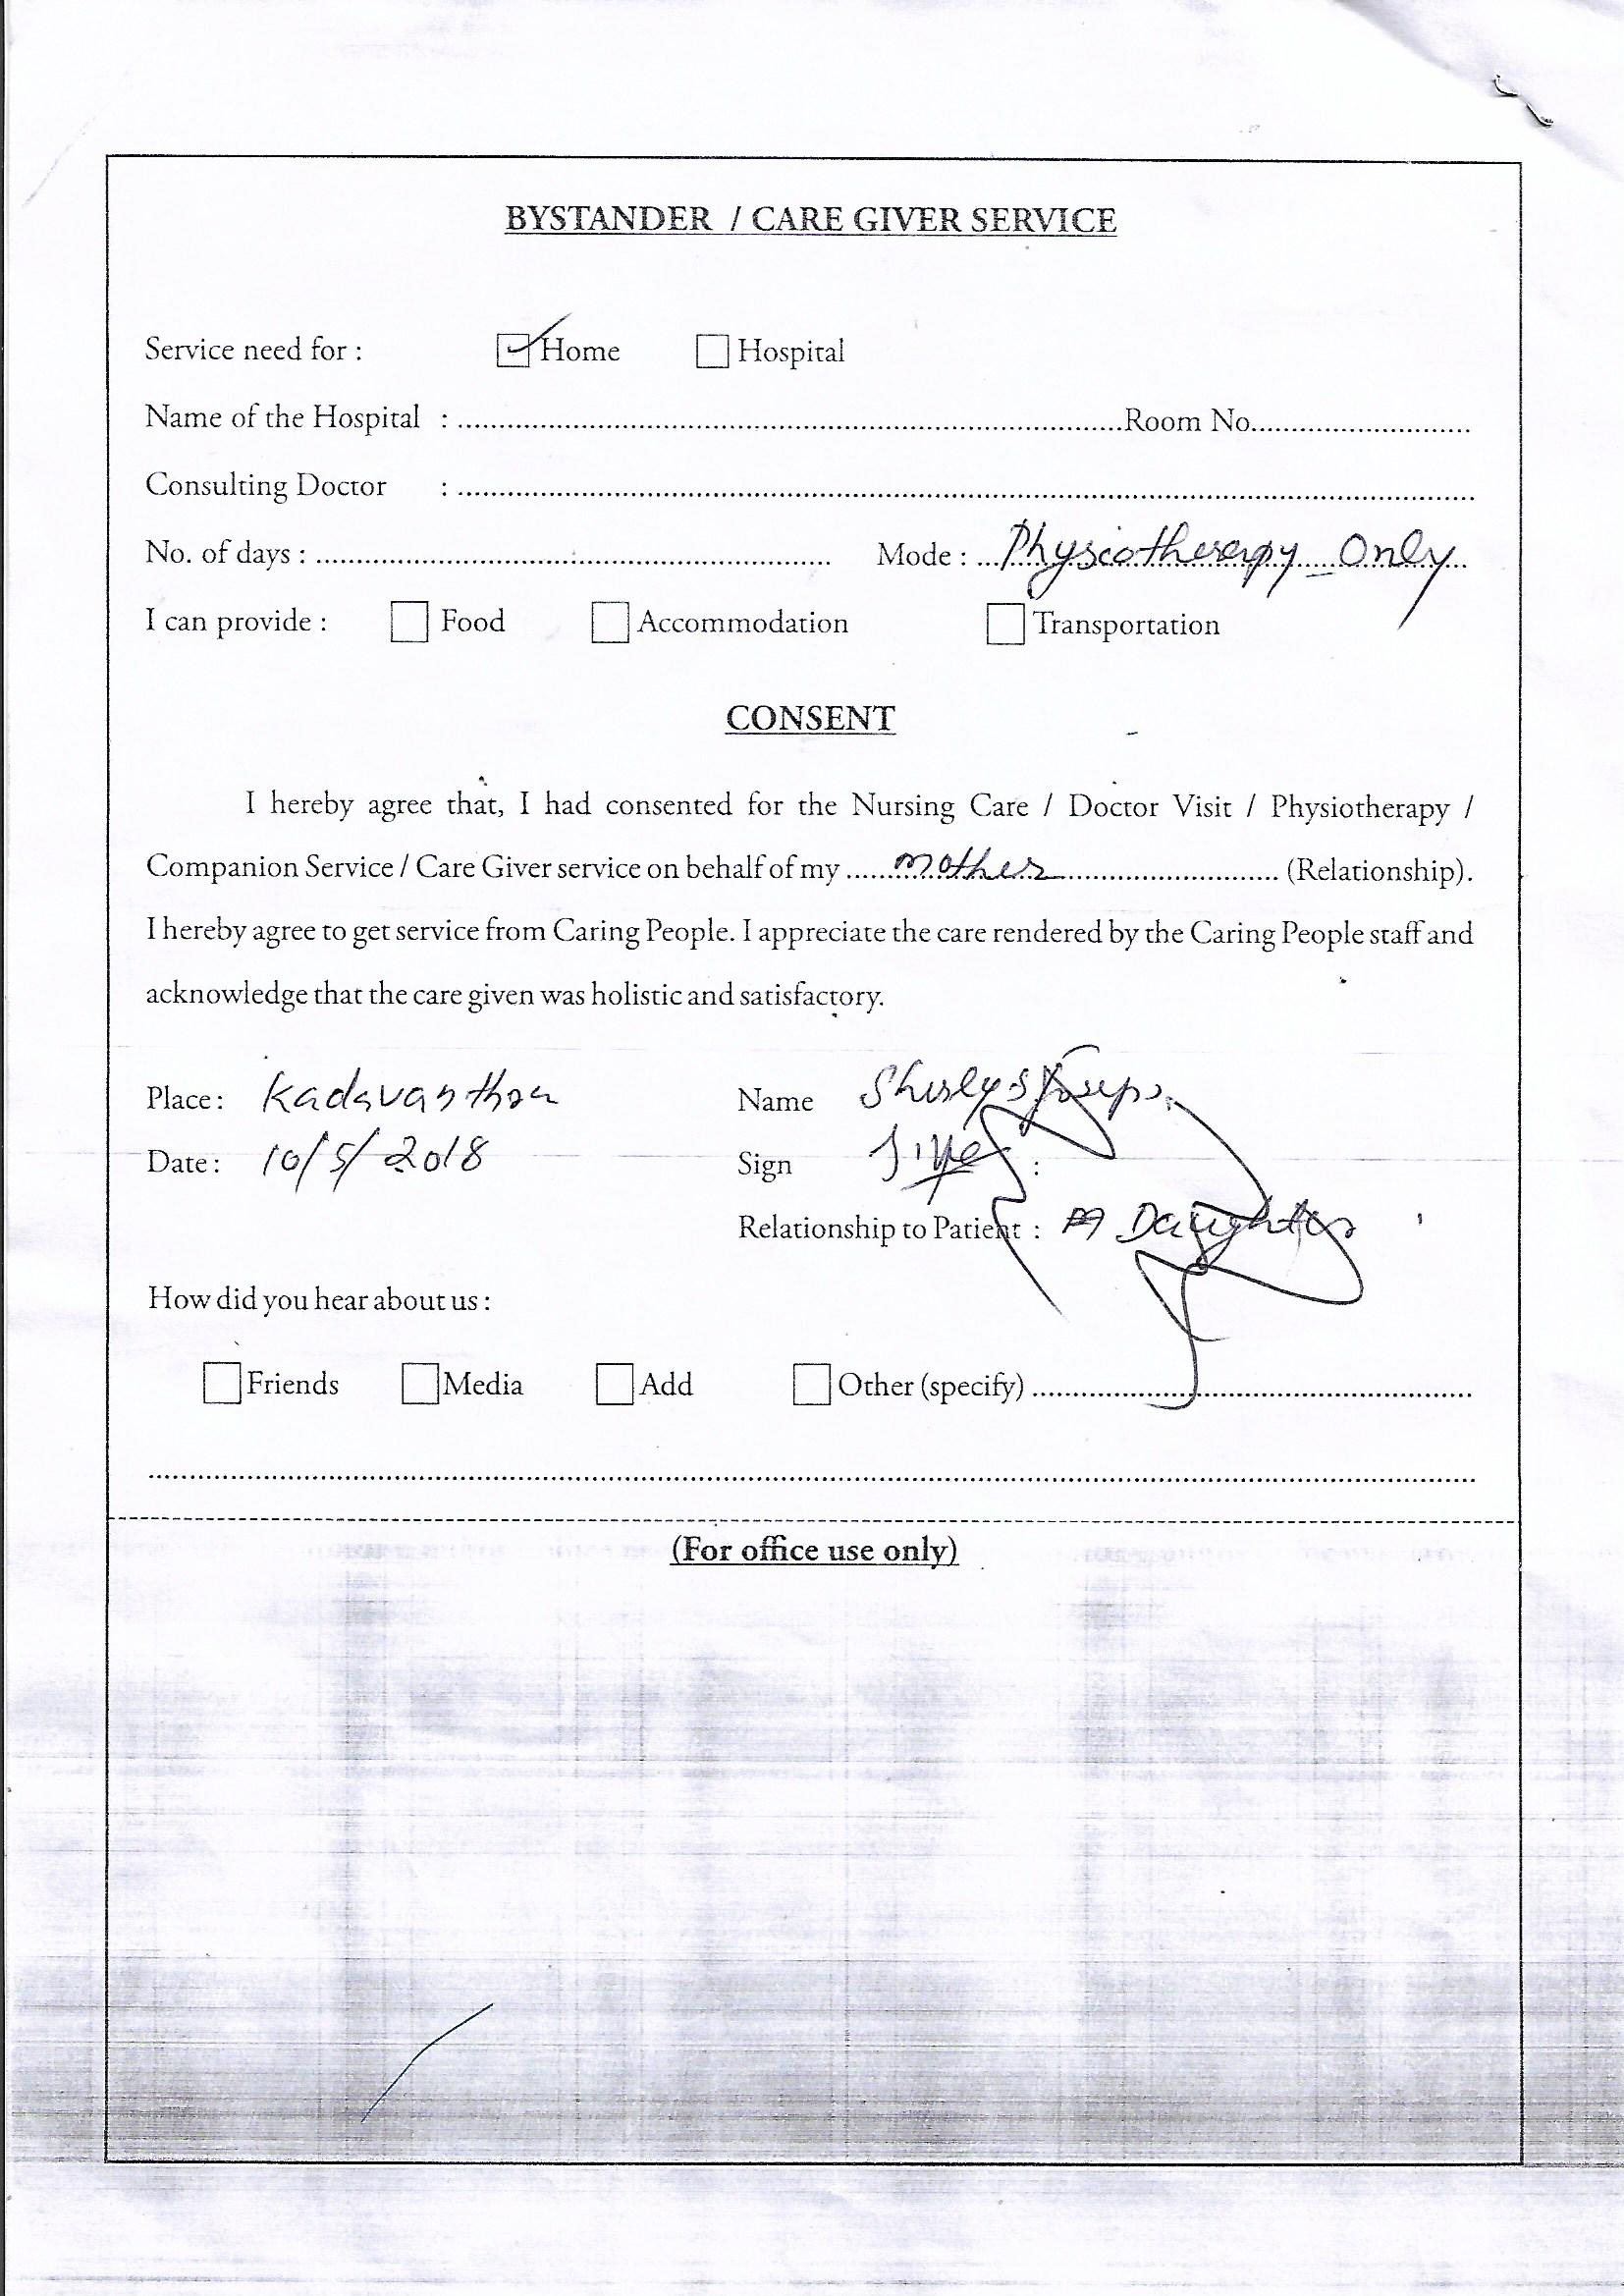 BYSTANDER / CARE GIVER SERVICE
Service need for : Home Hospital
Name of the Hospital : Room No.
Consulting Doctor :
No. of days : Mode : Physiotherapy Only
I can provide : Food Accommodation Transportation
CONSENT
I hereby agree that, I had consented for the Nursing Care / Doctor Visit / Physiotherapy /
Companion Service / Care Giver service on behalf of my mother (Relationship).
I hereby agree to get service from Caring People. I appreciate the care rendered by the Caring People staff and
acknowledge that the care given was holistic and satisfactory.
Place : Kadavanthra Name Shirly
Date : 10/5/2018 Sign :
Relationship to Patient : Daughter
How did you hear about us :
Friends Media Add Other (specify)
(For office use only)